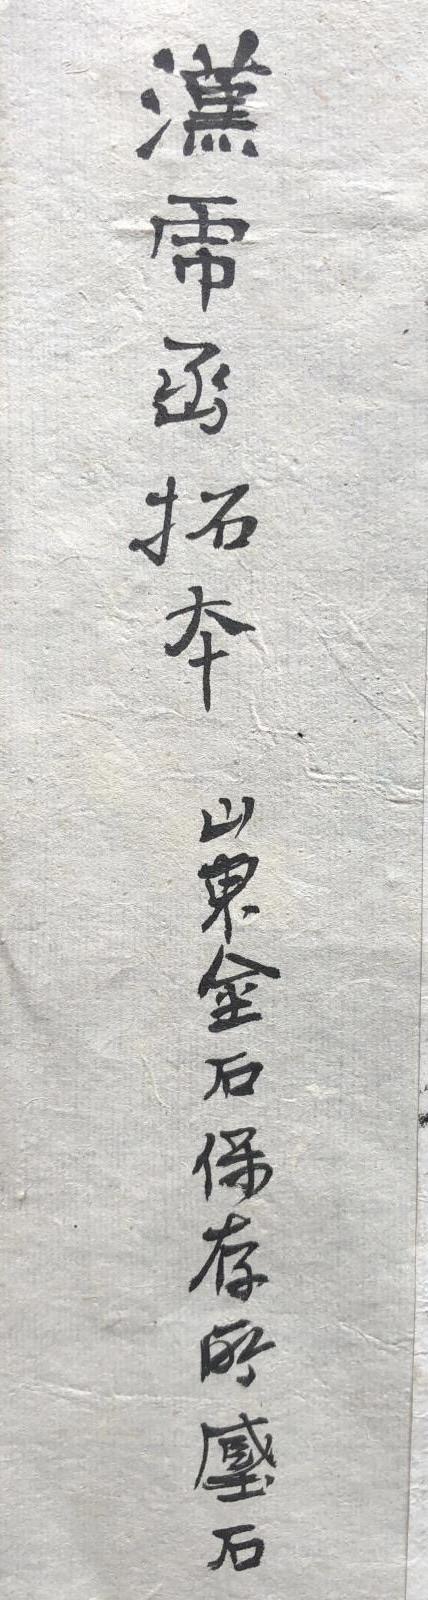 漢函拓本 山東金石保存所藏石